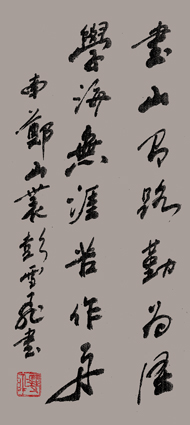 書山有路勤為徑
學海無涯苦作舟
南鄭山叢彭雪飛書